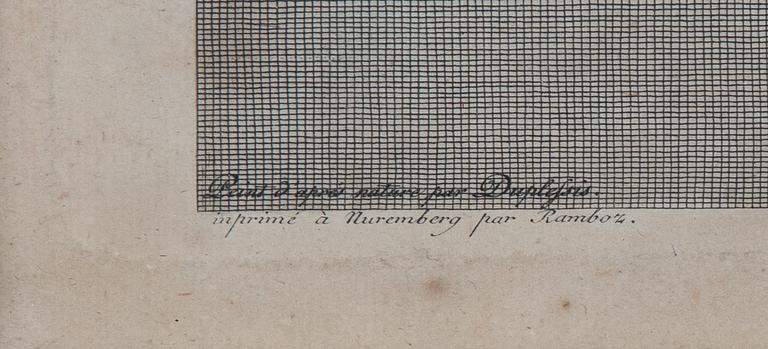 Peint d'après nature par Dupleſsis.
inprimé à Nuremberg par Ramboz.